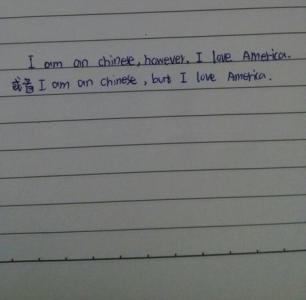 I am an chinese, however, I love America.
或者 I am an chinese, but I love America.